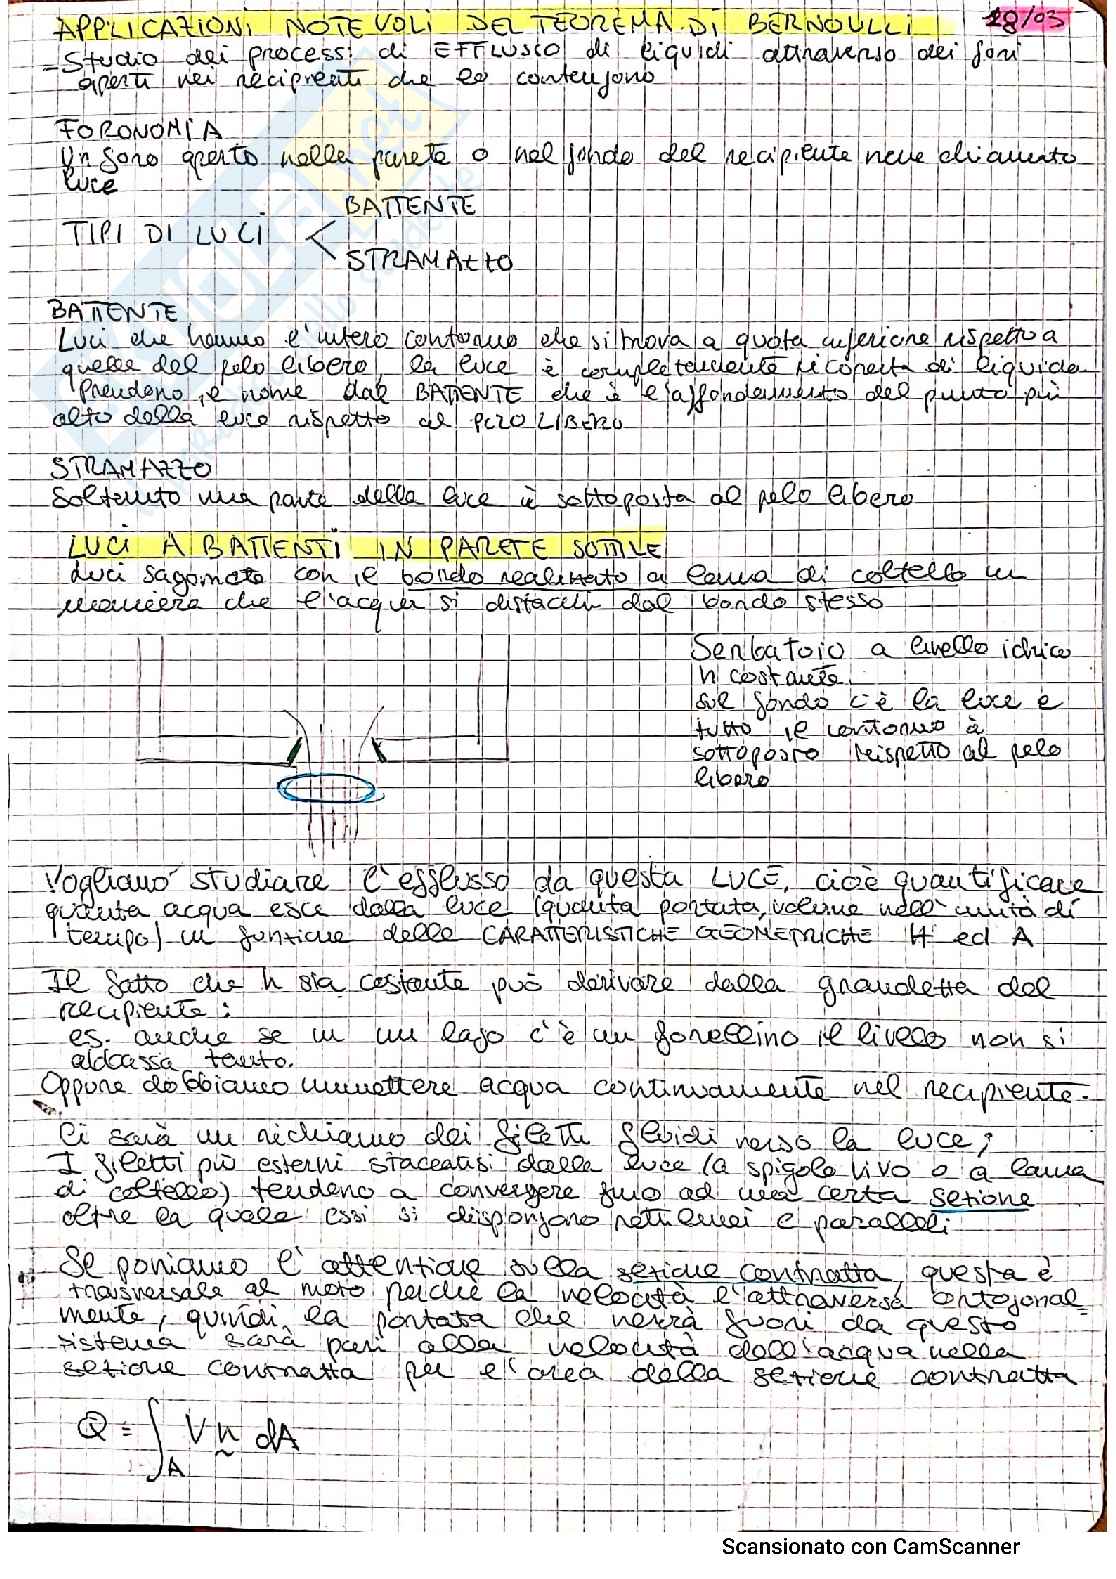 APPLICAZIONI NOTEVOLI DEL TEOREMA DI BERNOULLI 18/03
- Studio dei processi di EFFLUSSO di liquidi attraverso dei fori
aperti nei recipienti che lo contengono
FORONOMIA
Un foro aperto nella parete o nel fondo del recipiente viene chiamato
luce
TIPI DI LUCI
BATTENTE
STRAMAZZO
BATTENTE
Luci che hanno l'intero contorno che si trova a quota inferiore rispetto a
quella del pelo libero, la luce è completamente ricoperta di liquido
Prendono il nome dal BATTENTE che è l'affondamento del punto più
alto della luce rispetto al PELO LIBERO
STRAMAZZO
Soltanto una parte della luce è sottoposta al pelo libero
LUCI A BATTENTI IN PARETE SOTTILE
Luci sagomate con il bordo realizzato a lama di coltello in
maniera che l'acqua si distacchi dal bordo stesso
Serbatoio a livello idrico
h costante.
sul fondo c'è la luce e
tutto il contorno è
sottoposto rispetto al pelo
libero
Vogliamo studiare l'efflusso da questa LUCE, cioè quantificare
quanta acqua esce dalla luce (quanta portata, volume nell'unità di
tempo) in funzione delle CARATTERISTICHE GEOMETRICHE H ed A
Il fatto che h sia costante può derivare dalla grandezza del
recipiente:
es. anche se in un lago c'è un forellino il livello non si
abbassa tanto.
Oppure dobbiamo immettere acqua continuamente nel recipiente.
Ci sarà un richiamo dei filetti fluidi verso la luce;
I filetti più esterni staccatisi dalla luce (a spigolo vivo o a lama
di coltello) tendono a convergere fino ad una certa sezione
oltre la quale essi si dispongono rettilinei e paralleli
Se poniamo l'attenzione sulla sezione contratta, questa è
trasversale al moto perché la velocità l'attraversa ortogonal-
mente, quindi la portata che verrà fuori da questo
sistema sarà pari alla velocità dell'acqua nella
sezione contratta per l'area della sezione contratta
Q = ∫_A V n dA
Scansionato con CamScanner